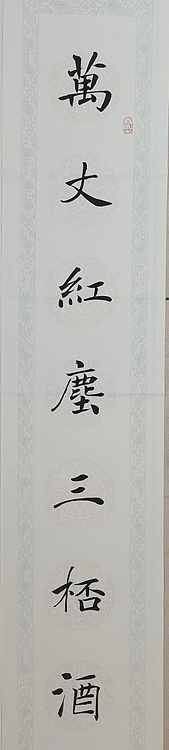 萬丈紅塵三桮酒